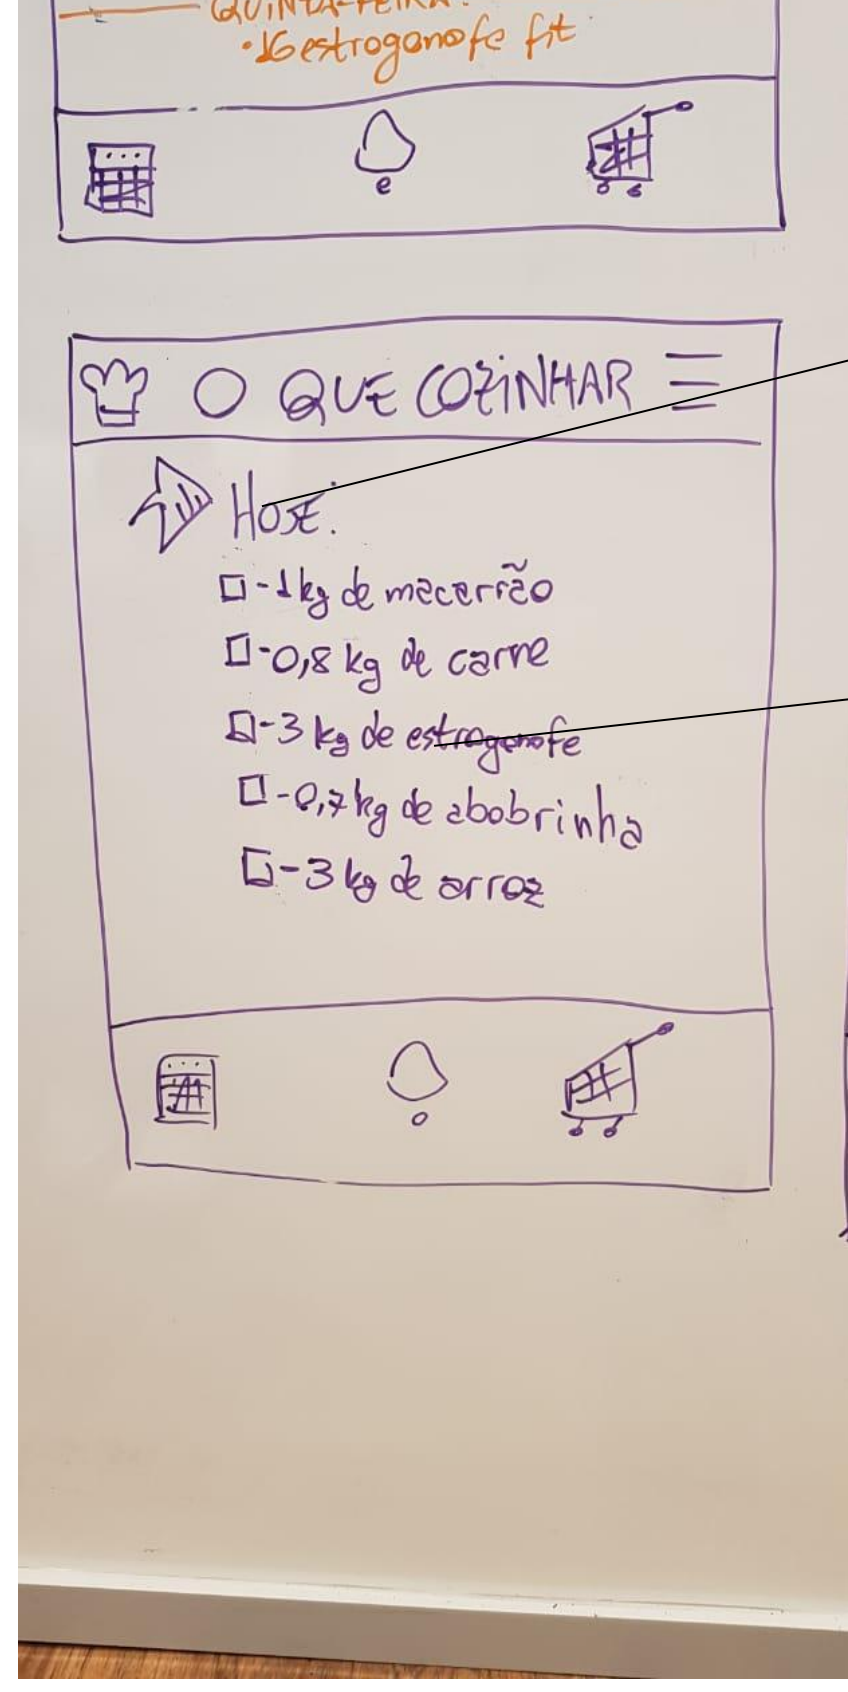 QUINTA-FEIRA:
• 16 estrogonofe fit
O QUE COZINHAR
Hoje:
- 1 kg de macarrão
- 0,8 kg de carne
- 3 kg de estrogonofe
- 0,7 kg de abobrinha
- 3 kg de arroz